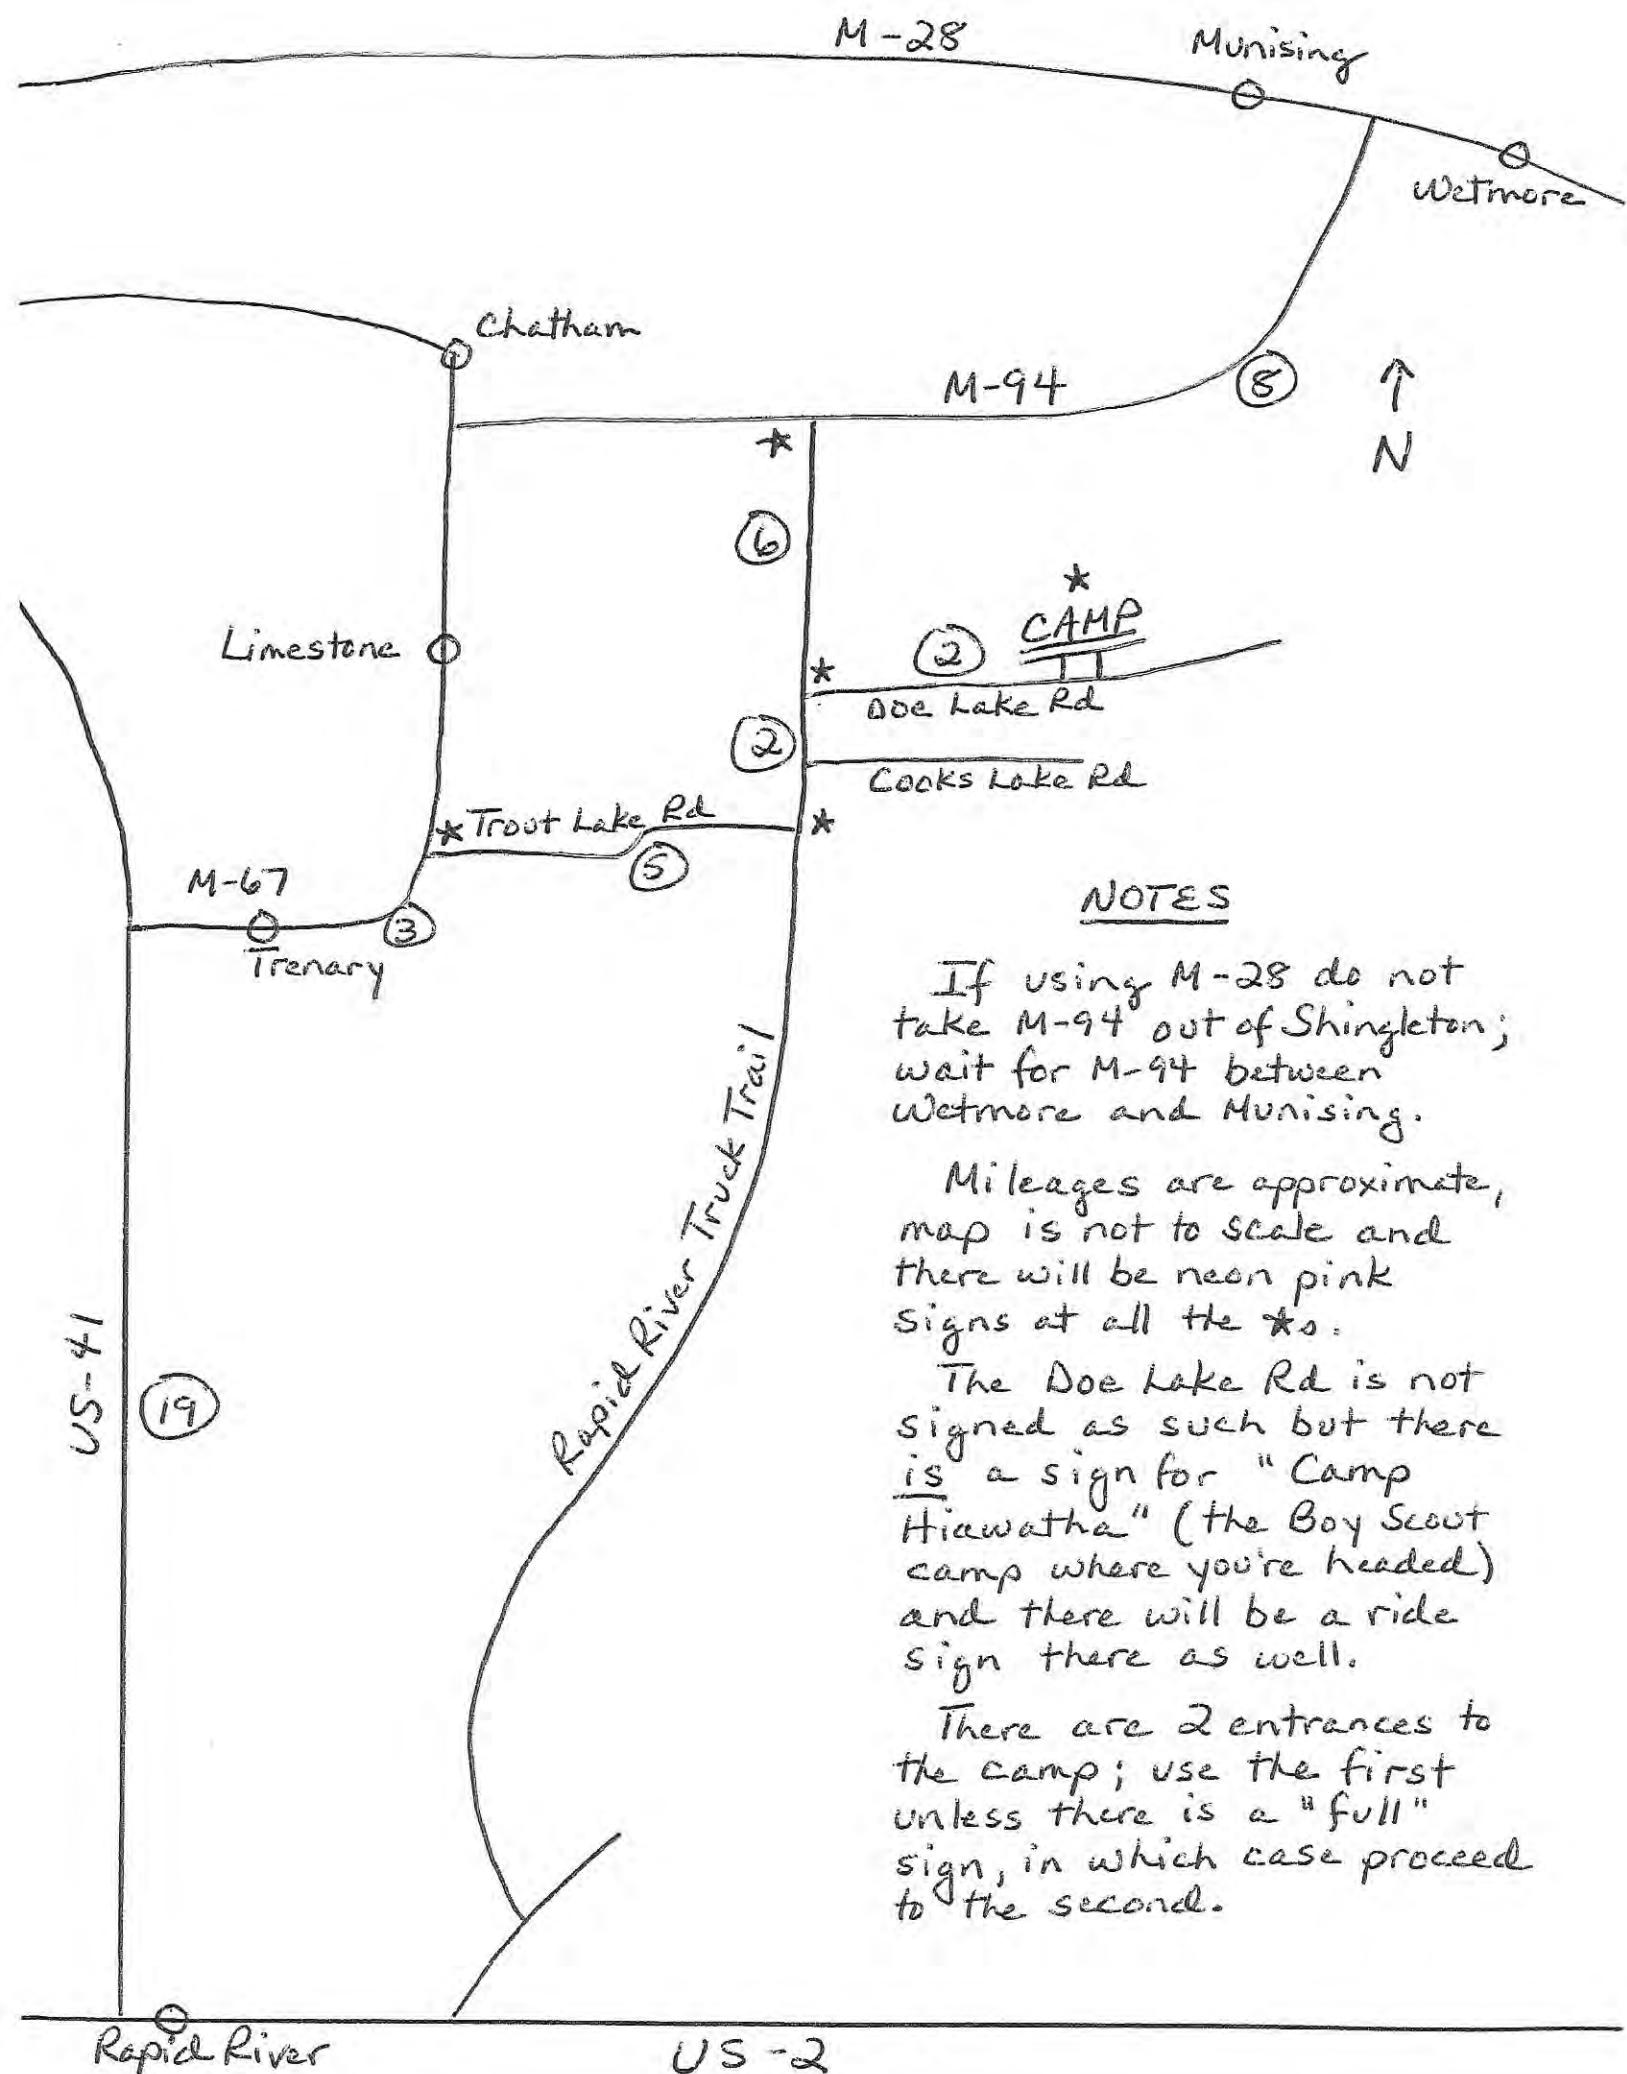 M-28
Munising
Wetmore
Chatham
M-94
8
↑
N
★
6
★
CAMP
2
Limestone
★
Doe Lake Rd
2
Cooks Lake Rd
★ Trout Lake Rd
★
5
M-67
3
Trenary
NOTES
If using M-28 do not
take M-94 out of Shingleton;
wait for M-94 between
Wetmore and Munising.
Mileages are approximate,
map is not to scale and
there will be neon pink
signs at all the ★s.
The Doe Lake Rd is not
signed as such but there
is a sign for "Camp
Hiawatha" (the Boy Scout
camp where you're headed)
and there will be a ride
sign there as well.
There are 2 entrances to
the camp; use the first
unless there is a "full"
sign, in which case proceed
to the second.
Rapid River Truck Trail
US-41
19
Rapid River
US-2